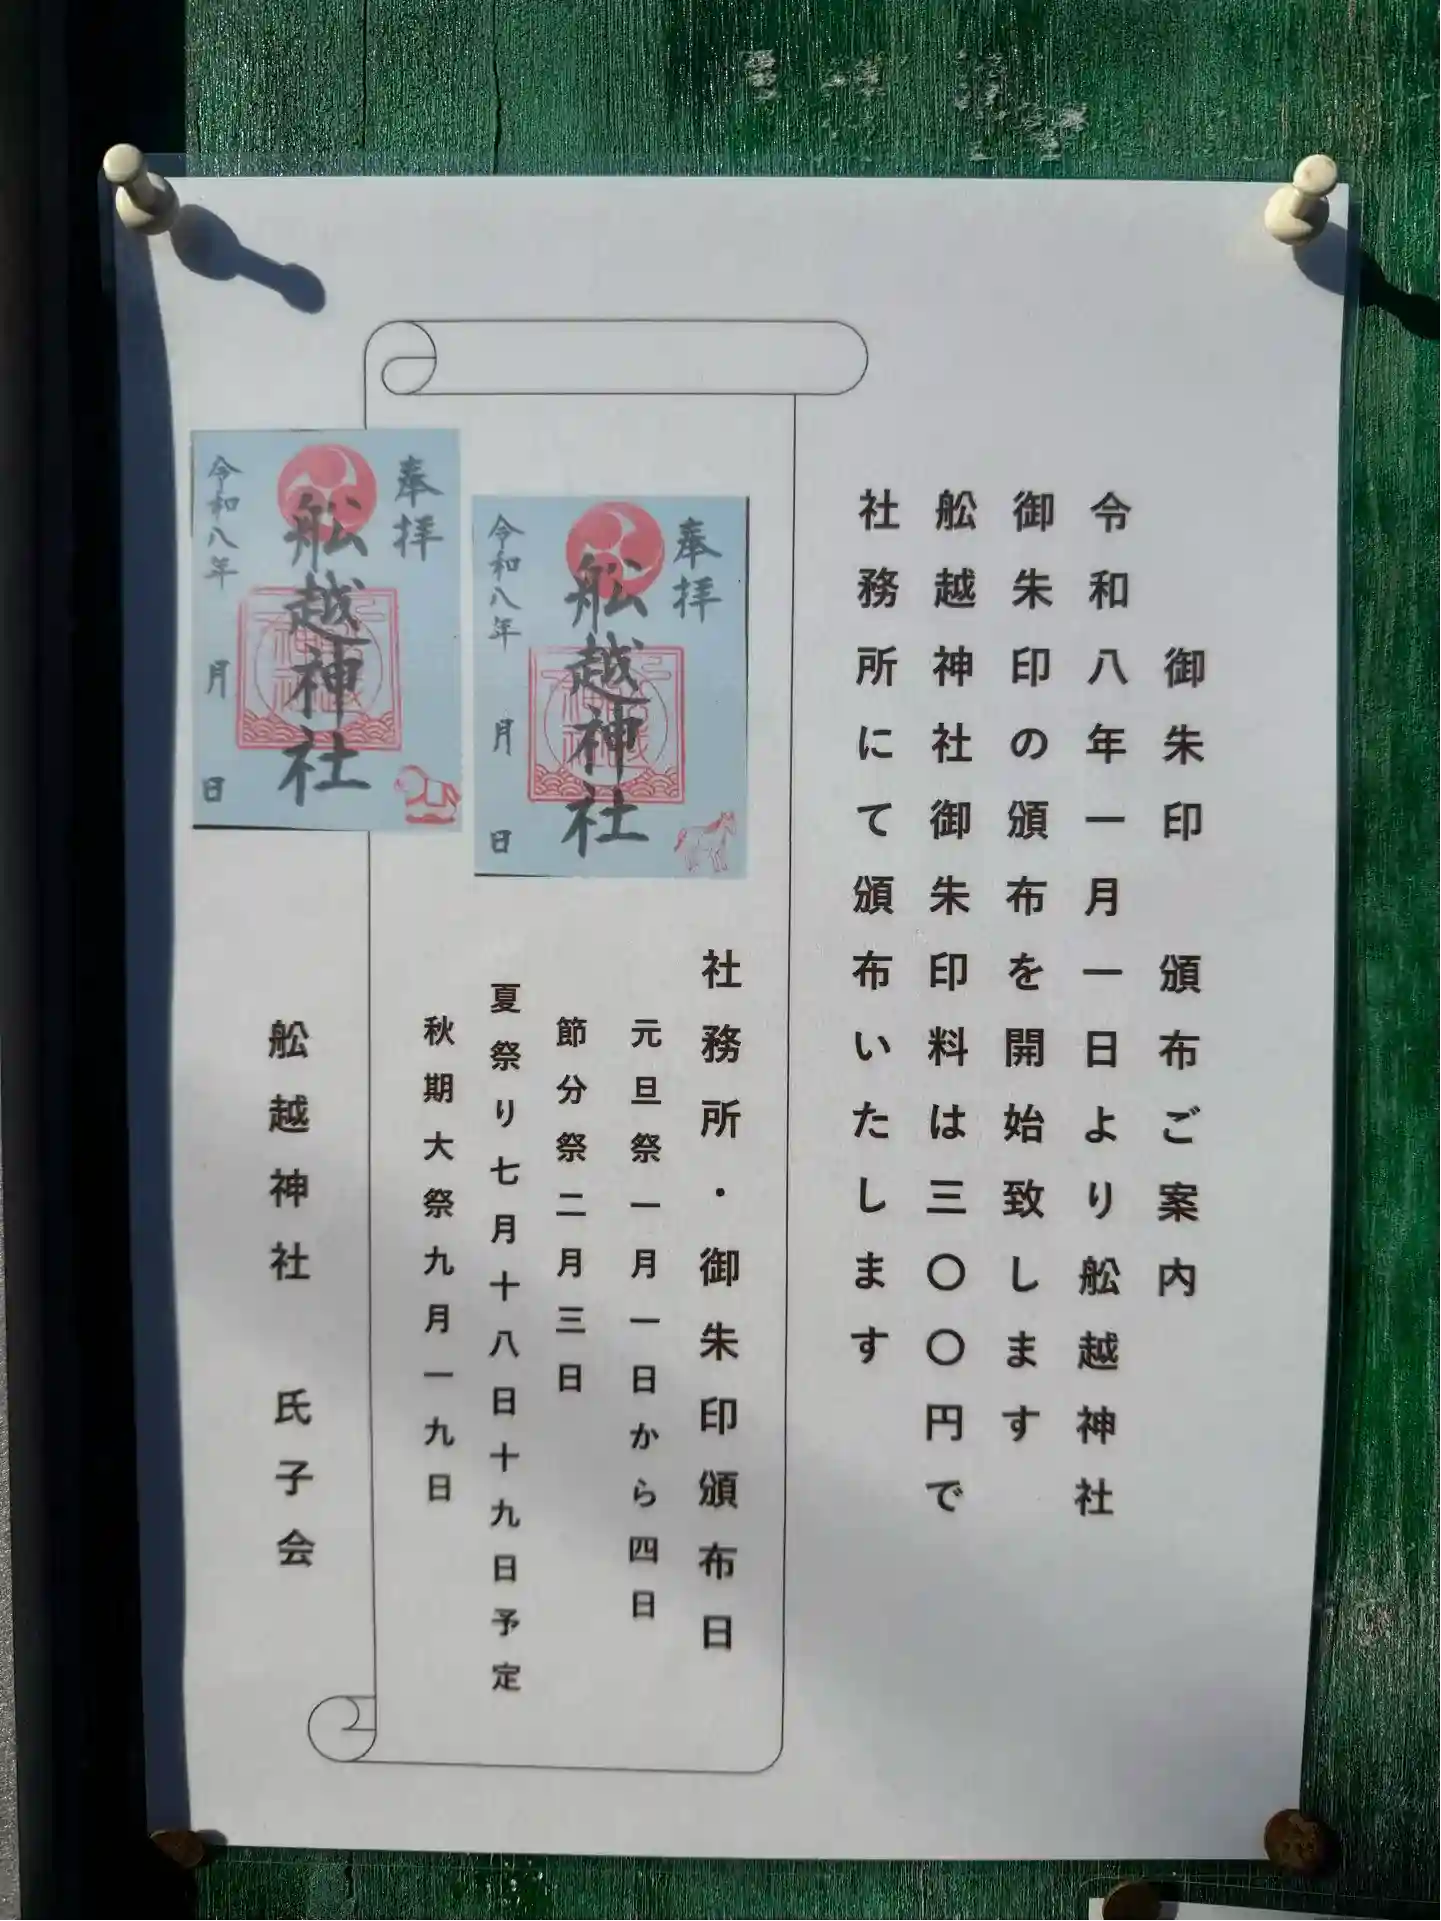 御朱印　頒布ご案内
令和八年一月一日より舩越神社
御朱印の頒布を開始致します
舩越神社御朱印料は三〇〇円で
社務所にて頒布いたします
社務所・御朱印頒布日
元旦祭一月一日から四日
節分祭二月三日
夏祭り七月十八日十九日予定
秋期大祭九月一九日
奉拝
舩越神社
令和八年　月　日
奉拝
舩越神社
令和八年　月　日
舩越神社　氏子会